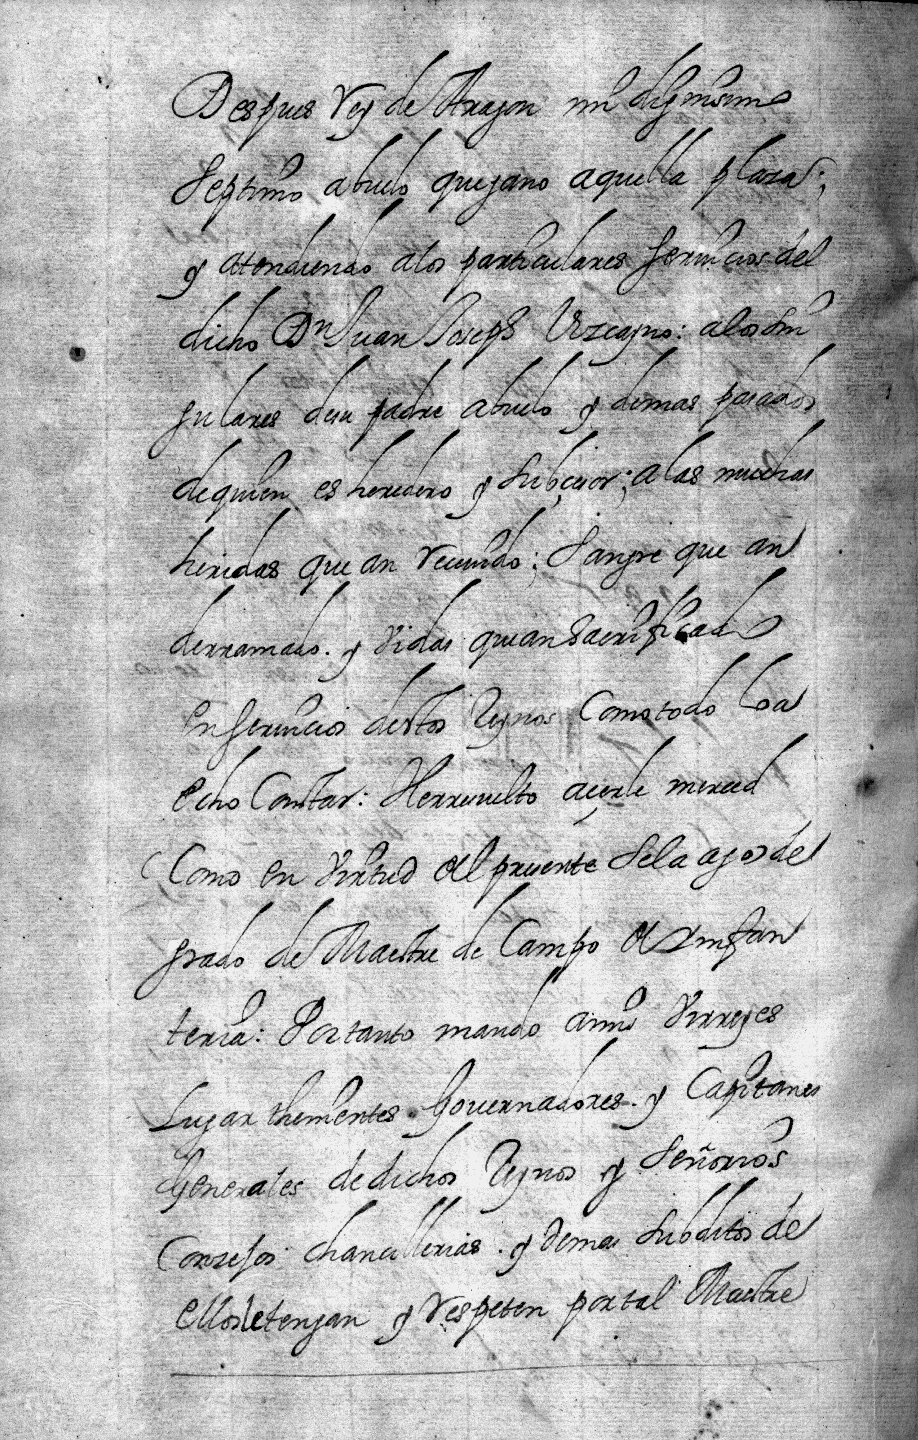 Despues Rey de Aragon mi dignisimo
Septimo abuelo que gano aquella plaza;
y atendiendo alos particulares servicios del
dicho Dn Juan Joseph Vizcayno: alos sin
gulares desu padre abuelo y demas pasados
dequien es heredero y subçesor; alas muchas
heridas que an recivido; Sangre que an
derramado. y vidas quean Sacrificado
en servicio destos Reynos Como todo loa
echo Constar: Herresuelto açerle merced
Como en virtud del presente sela ago del
grado de Maestre de Campo de Infan
teria: Portanto mando amis Virreyes
Lugar thenientes Governadores. y Capitanes
Generales dedichos Reynos y Señorios
Consejos chancillerias. y demas subditos de
ellos letengan y Respeten portal Maestre